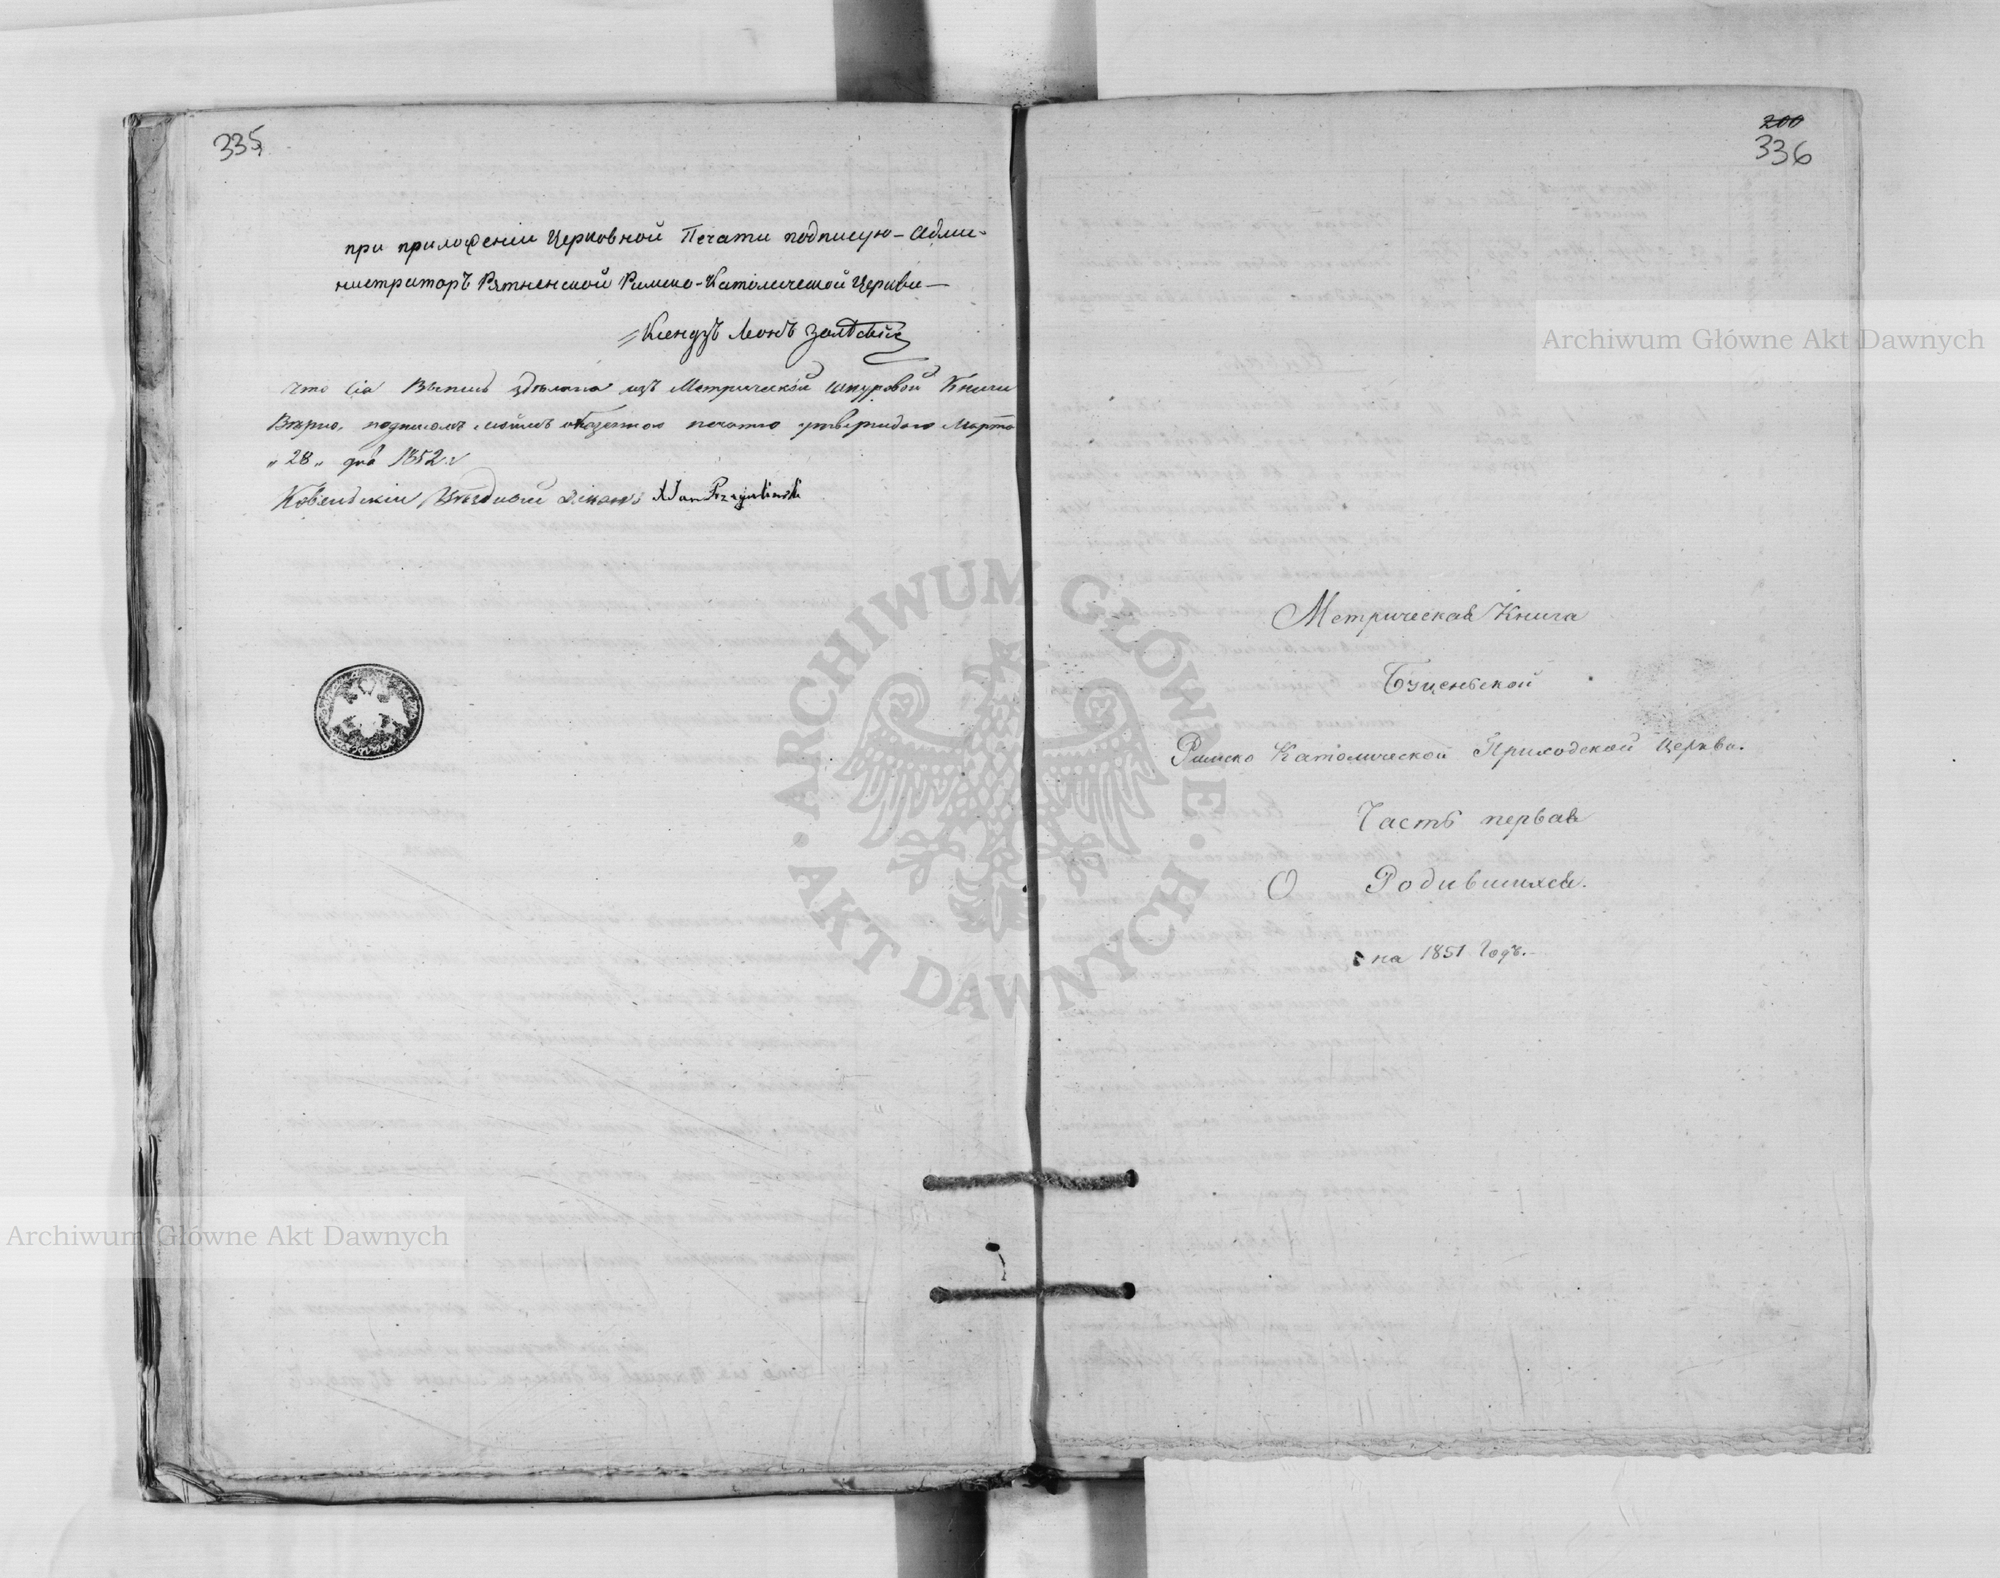 335
при приложеніи Церковной Печати подписую - Адми-
нистраторъ Рятненской Римско-Католической Церкви -
Ксендзъ Леонъ
что сія Выпись здѣлана изъ Метрической шнуровой Книги
Вѣрно, подписомъ и печатью утверждаю Марта
"28" дня 1852 г.
Ковельскій Уѣздный Деканъ
200
336
Метрическая Книга
Буценьской
Римско Католической Приходской Церкви.
Часть первая
О Родившихся.
на 1851 Годъ.
Archiwum Główne Akt Dawnych
Archiwum Główne Akt Dawnych
ARCHIWUM GŁÓWNE
AKT DAWNYCH